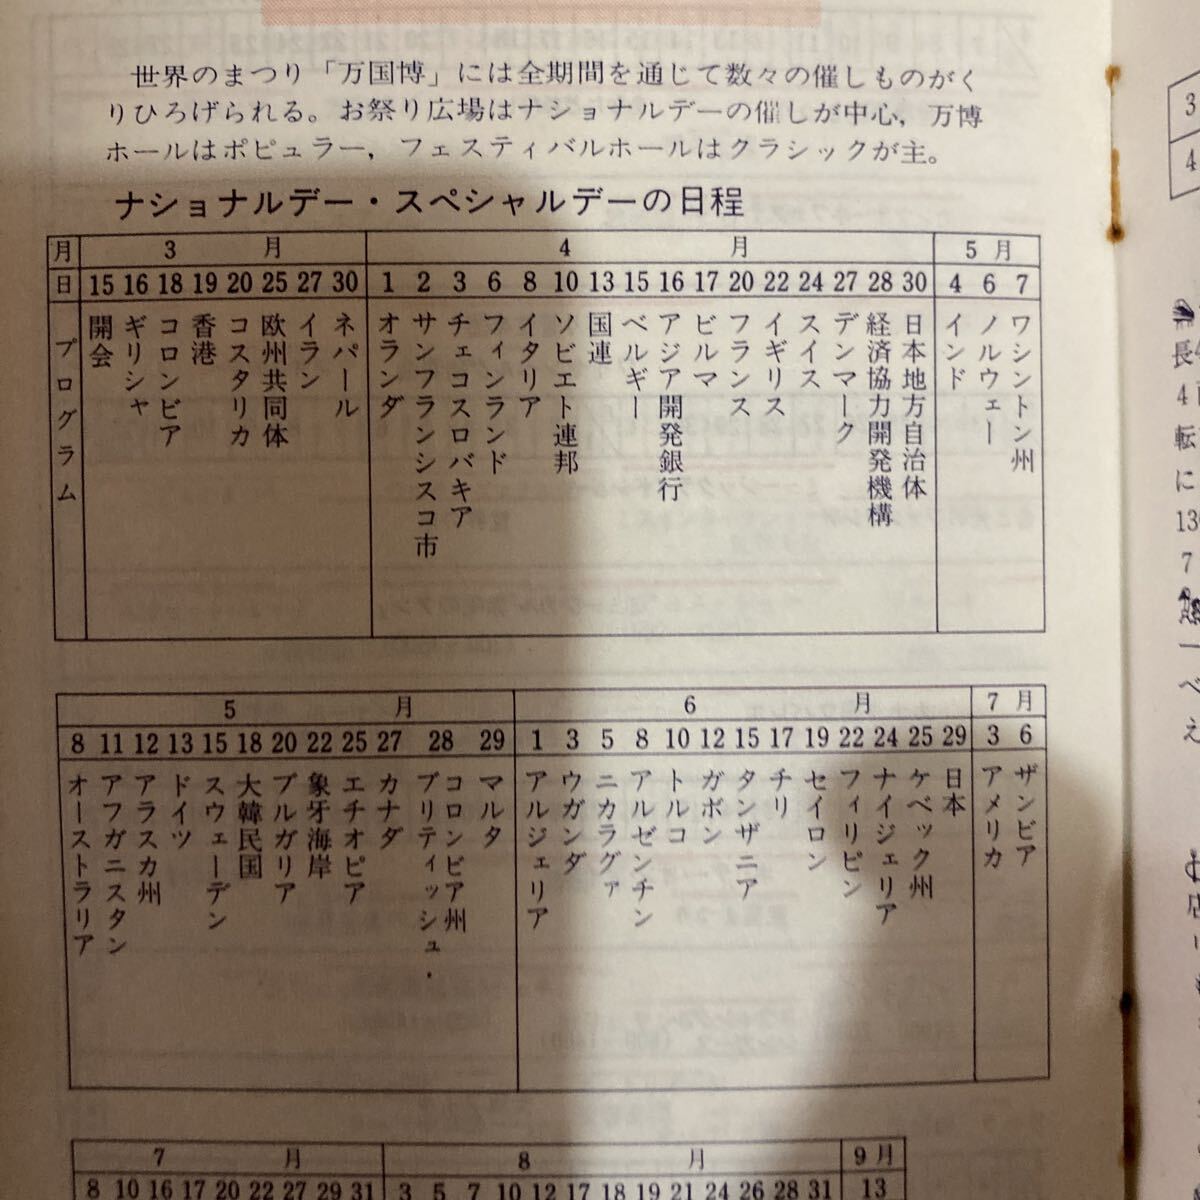 世界のまつり「万国博」には全期間を通じて数々の催しものがく
りひろげられる。お祭り広場はナショナルデーの催しが中心，万博
ホールはポピュラー，フェスティバルホールはクラシックが主。
ナショナルデー・スペシャルデーの日程
月 3 月 4 月 5 月
日 15 16 18 19 20 25 27 30 1 2 3 6 8 10 13 15 16 17 20 22 24 27 28 30 4 6 7
プログラム
開会
ギリシャ
コロンビア
香港
コスタリカ
欧州共同体
イラン
ネパール
オランダ
サンフランシスコ市
チェコスロバキア
フィンランド
イタリア
ソビエト連邦
国連
ベルギー
アジア開発銀行
ビルマ
フランス
イギリス
スイス
デンマーク
経済協力開発機構
日本地方自治体
インド
ノルウェー
ワシントン州
5 月 6 月 7 月
8 11 12 13 15 18 20 22 25 27 28 29 1 3 5 8 10 12 15 17 19 22 24 25 29 3 6
オーストラリア
アフガニスタン
アラスカ州
ドイツ
スウェーデン
大韓民国
ブルガリア
象牙海岸
エチオピア
カナダ
ブリティッシュ・
コロンビア州
マルタ
アルジェリア
ウガンダ
ニカラグァ
アルゼンチン
トルコ
ガボン
タンザニア
チリ
セイロン
フィリピン
ナイジェリア
ケベック州
日本
アメリカ
ザンビア
7 月 8 月 9 月
8 10 16 17 20 22 27 29 31 3 5 7 10 12 17 18 19 21 24 26 28 31 13
3
4
長
4
転
に
13
7
一
べ
え
店